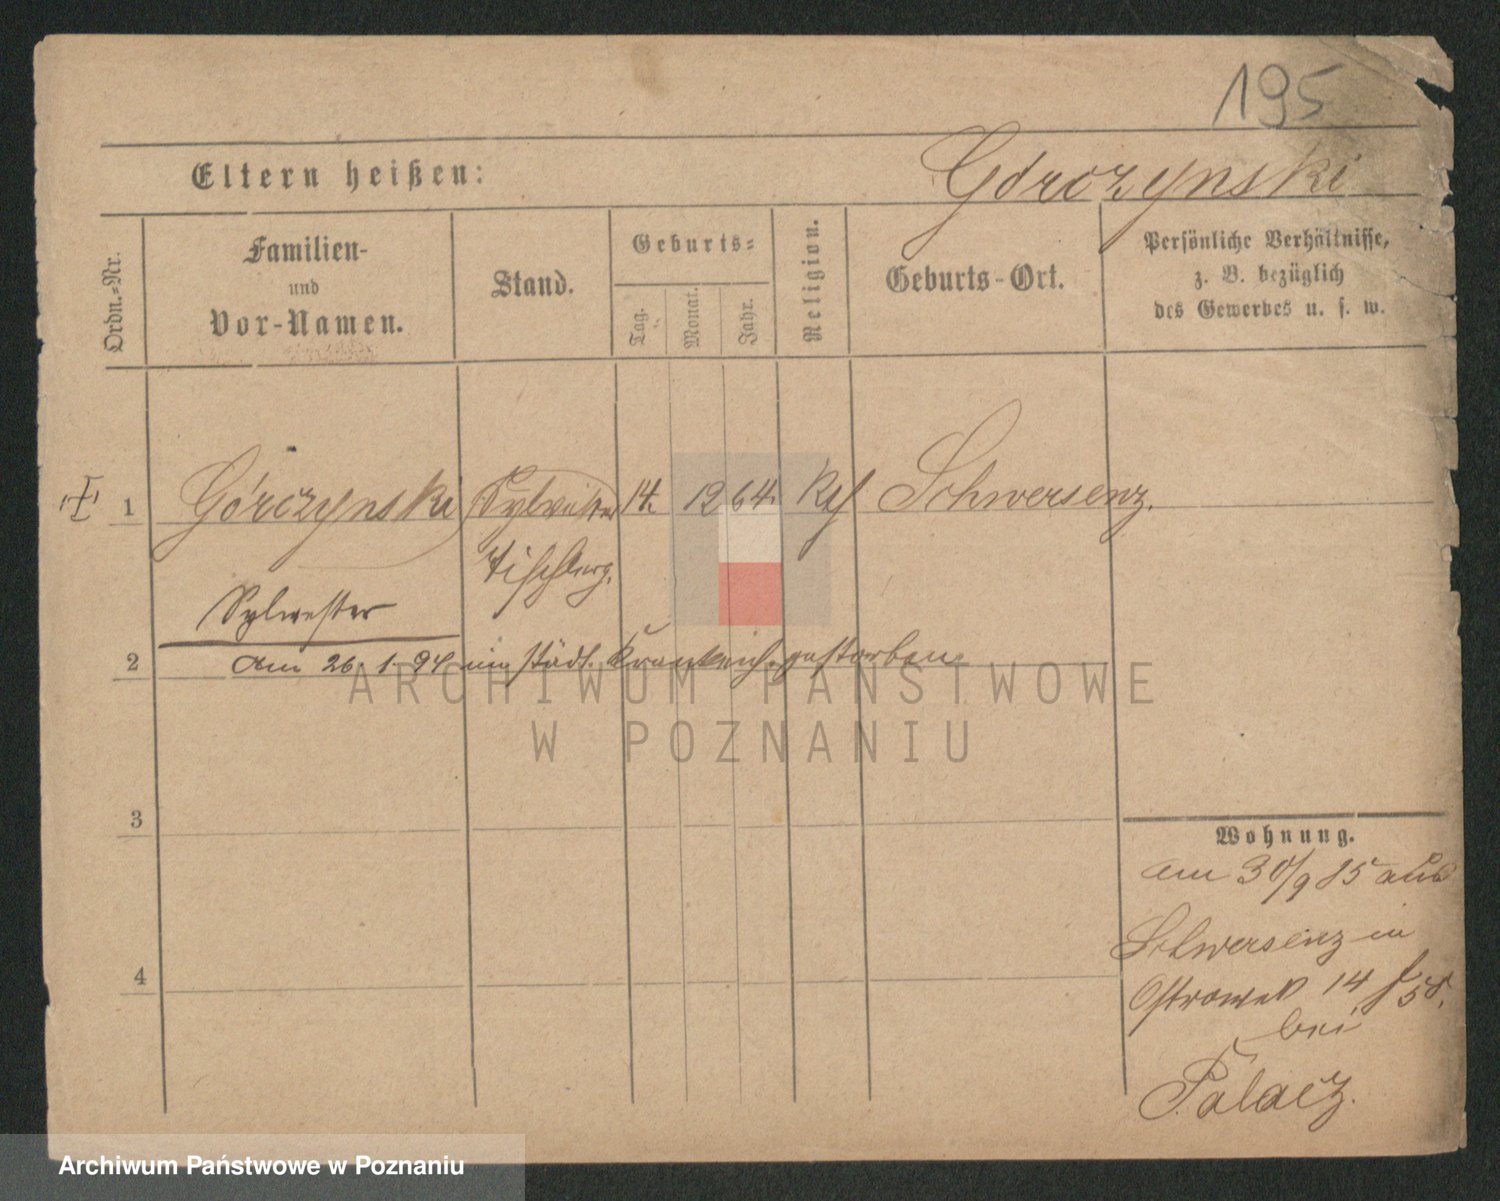 195
Eltern heißen:
Górczynski
Ordn.-Nr.
Familien-
und
Vor-Namen.
Stand.
Geburts-
Tag.
Monat.
Jahr.
Religion.
Geburts-Ort.
Persönliche Verhältnisse,
z. B. bezüglich
des Gewerbes u. s. w.
1 Górczynski Sylvester 14. 12 64. Kth Schwersenz.
Tischlerg.
Sylwester
2 am 26. 1. 94 im städt. Krankenh. gestorben
ARCHIWUM PAŃSTWOWE
W POZNANIU
3
4
Wohnung.
am 30/9 85 aus
Schwersenz in
Ostrowek 14
bei
Palacz.
Archiwum Państwowe w Poznaniu